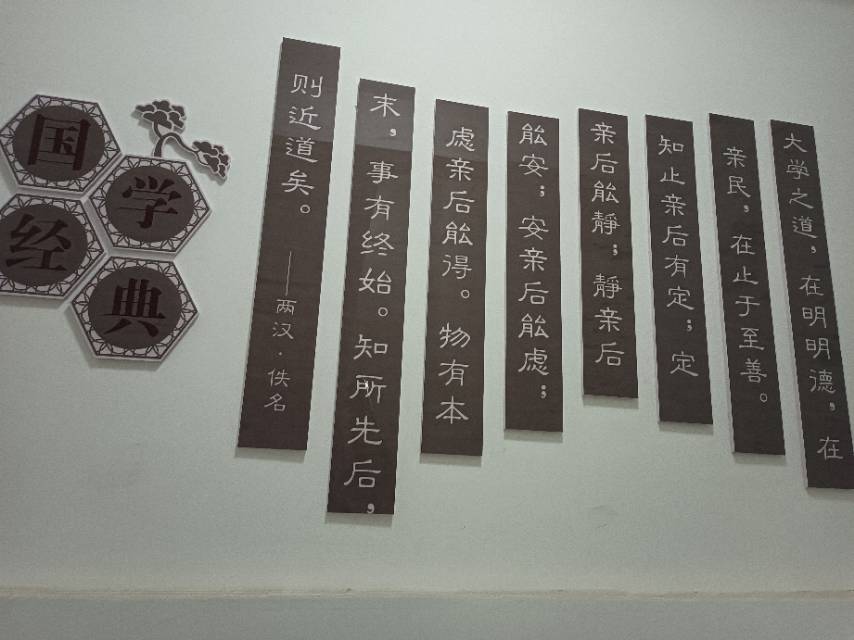 国学经典
大学之道，在明明德，在
亲民，在止于至善。
知止亲后有定；定
亲后能靜；靜亲后
能安；安亲后能虑；
虑亲后能得。物有本
末，事有终始。知所先后，
则近道矣。
——两汉·佚名